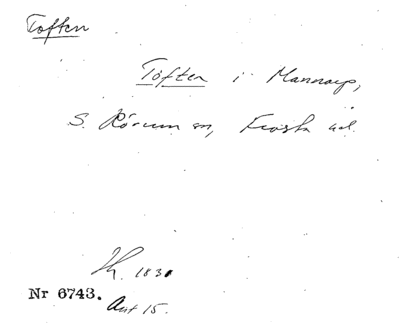 Toften
Toften i Mannarp,
S. Rörum sn, Frosta hd.
Nr 6743.
Akt 15.